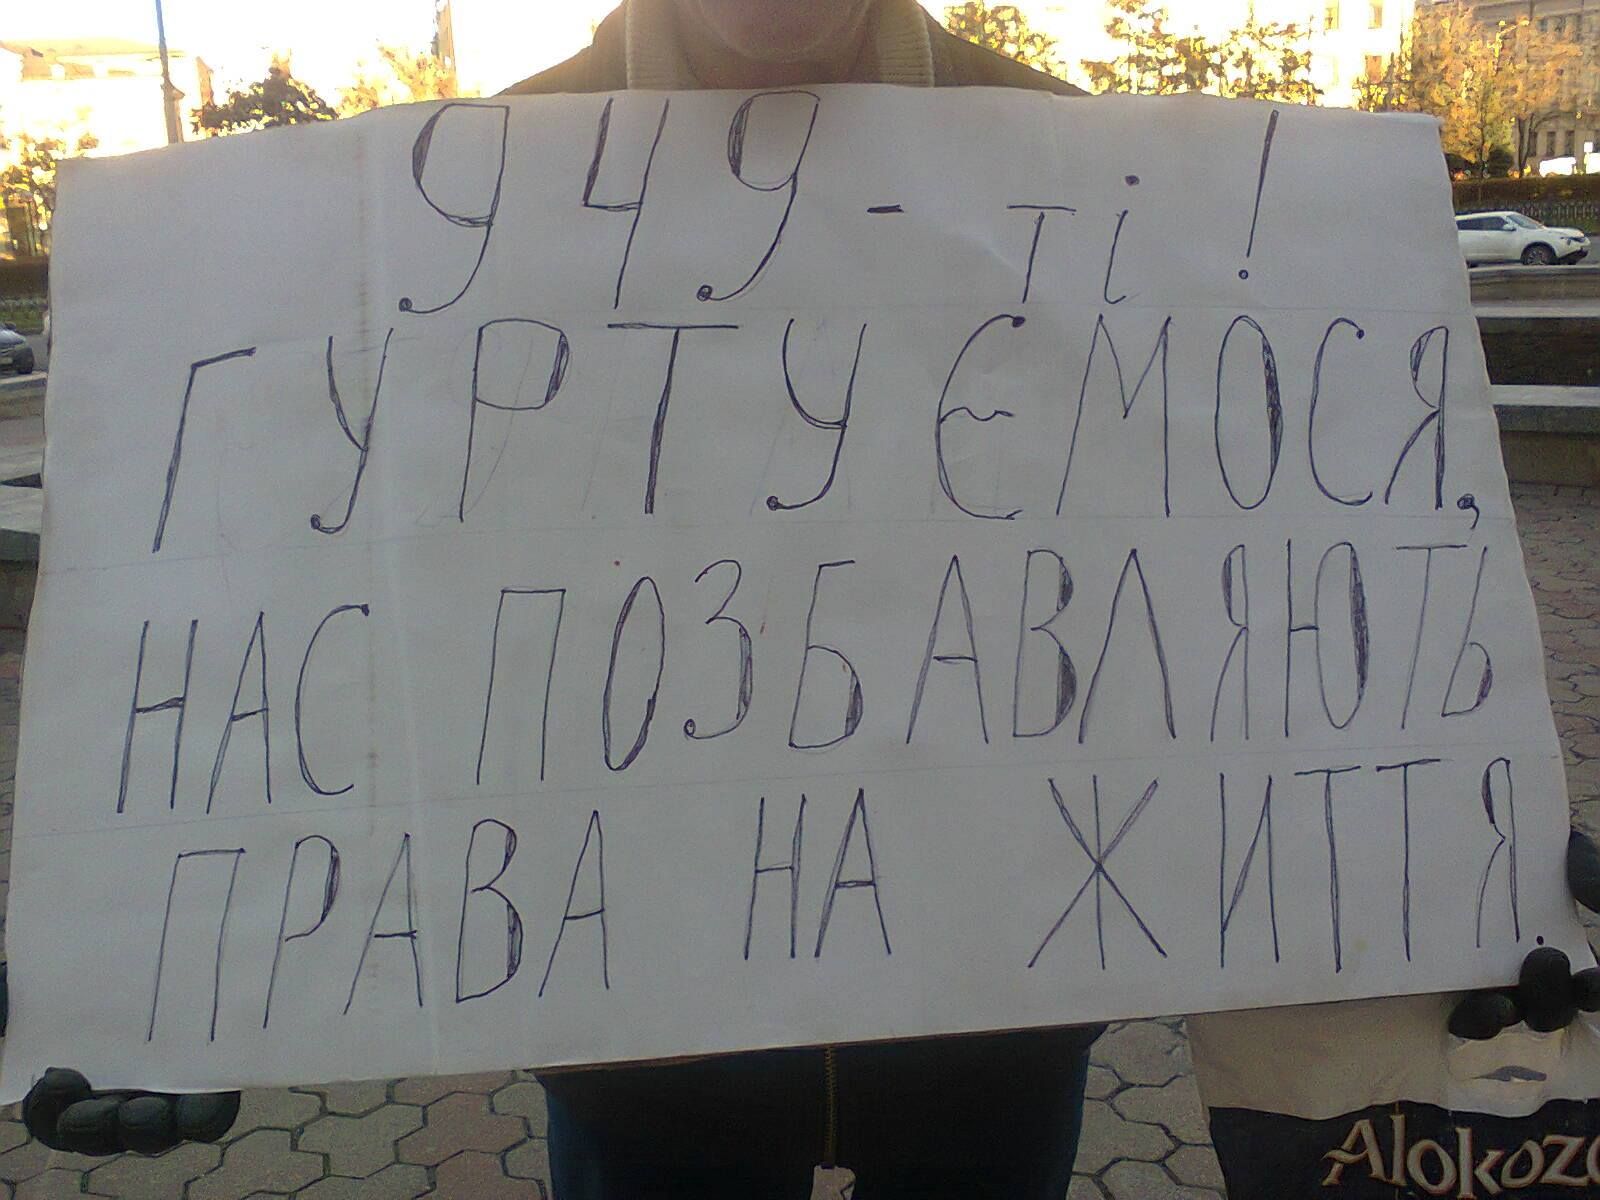 949-ті!
ГУРТУЄМОСЯ,
НАС ПОЗБАВЛЯЮТЬ
ПРАВА НА ЖИТТЯ.
Alokoz